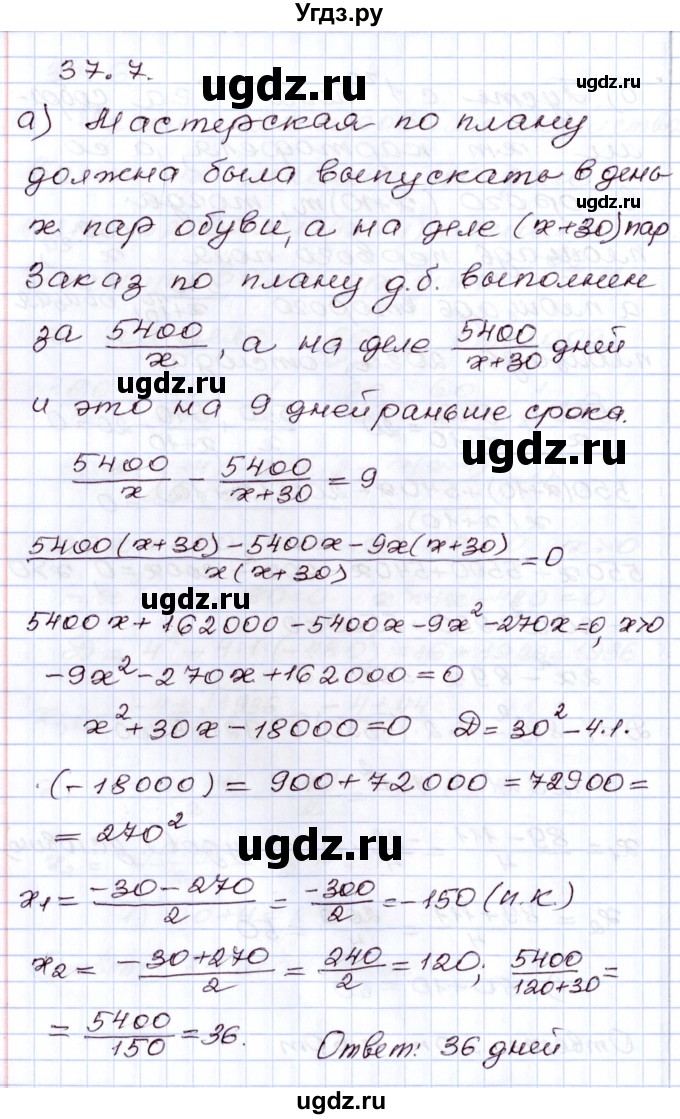 Угдз.ру
37.7.
ugdz.ru
а) Мастерская по плану
должна была выпускать в день
ugdz.ru
x пар обуви, а на деле (x+30) пар
Заказ по плану д.б. выполнен
за 5400/x, а на деле 5400/(x+30) дней
ugdz.ru
и это на 9 дней раньше срока.
ugdz.ru
5400/x - 5400/(x+30) = 9
(5400(x+30) - 5400x - 9x(x+30))/(x(x+30)) = 0
ugdz.ru
5400x + 162000 - 5400x - 9x² - 270x = 0, x>0
-9x² - 270x + 162000 = 0
x² + 30x - 18000 = 0 Д = 30² - 4·1·
·(-18000) = 900 + 72000 = 72900 =
= 270²
ugdz.ru
x₁ = (-30-270)/2 = -300/2 = -150 (п.к.)
x₂ = (-30+270)/2 = 240/2 = 120; 5400/(120+30) =
= 5400/150 = 36. Ответ: 36 дней
ugdz.ru
ugdz.ru